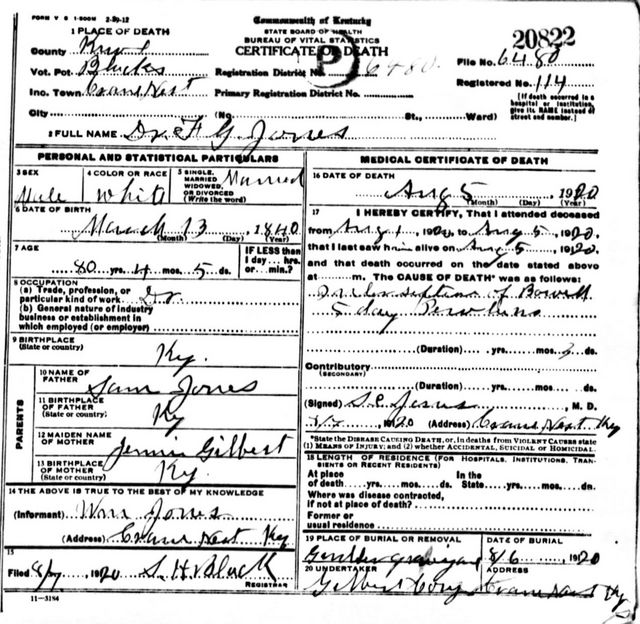 FORM V S 1-500M 2-29-12
Commonwealth of Kentucky
STATE BOARD OF HEALTH
BUREAU OF VITAL STATISTICS
CERTIFICATE OF DEATH
20822
1 PLACE OF DEATH
County Knox
Vot. Pct. Blacks
Inc. Town Crane Nest
City (No St., Ward)
Registration District No. 6480
Primary Registration District No.
P
File No. 6480
Registered No. 114
[If death occurred in a hospital or institution, give its NAME instead of street and number.]
2 FULL NAME Dr. F G. Jones
PERSONAL AND STATISTICAL PARTICULARS
3 SEX Male
4 COLOR OR RACE White
5 SINGLE, MARRIED WIDOWED, OR DIVORCED (Write the word) Married
6 DATE OF BIRTH
March 13, 1840
(Month) (Day) (Year)
7 AGE
80 yrs. 4 mos. 5 ds.
IF LESS than 1 day... hrs. or... min.?
8 OCCUPATION
(a) Trade, profession, or particular kind of work Dr
(b) General nature of industry business or establishment in which employed (or employer)
9 BIRTHPLACE
(State or country) Ky.
PARENTS
10 NAME OF FATHER Sam Jones
11 BIRTHPLACE OF FATHER (State or country) Ky
12 MAIDEN NAME OF MOTHER Jennie Gilbert
13 BIRTHPLACE OF MOTHER (State or country) Ky.
14 THE ABOVE IS TRUE TO THE BEST OF MY KNOWLEDGE
(Informant) Wm Jones
(Address) Crane Nest Ky
15
Filed 8/7 1920 S. H. Black
REGISTRAR
11-3184
MEDICAL CERTIFICATE OF DEATH
16 DATE OF DEATH
Aug 5 1920
(Month) (Day) (Year)
17 I HEREBY CERTIFY, That I attended deceased
from Aug 1, 1920, to Aug 5, 1920,
that I last saw him alive on Aug 5, 1920,
and that death occurred on the date stated above
at m. The CAUSE OF DEATH* was as follows:
of Bowell
5 day
(Duration) yrs. mos. ds.
Contributory
(SECONDARY)
(Duration) yrs. mos. ds.
(Signed) M. D.
1920 (Address) Crane Nest Ky
*State the DISEASE CAUSING DEATH, or, in deaths from VIOLENT CAUSES state (1) MEANS OF INJURY; and (2) whether ACCIDENTAL, SUICIDAL or HOMICIDAL.
18 LENGTH OF RESIDENCE (FOR HOSPITALS, INSTITUTIONS, TRANSIENTS OR RECENT RESIDENTS)
At place of death yrs. mos. ds. In the State yrs. mos. ds.
Where was disease contracted, if not at place of death?
Former or usual residence
19 PLACE OF BURIAL OR REMOVAL
Graveyard
DATE OF BURIAL
8/6 1920
20 UNDERTAKER
Gilbert
ADDRESS
Crane Nest Ky